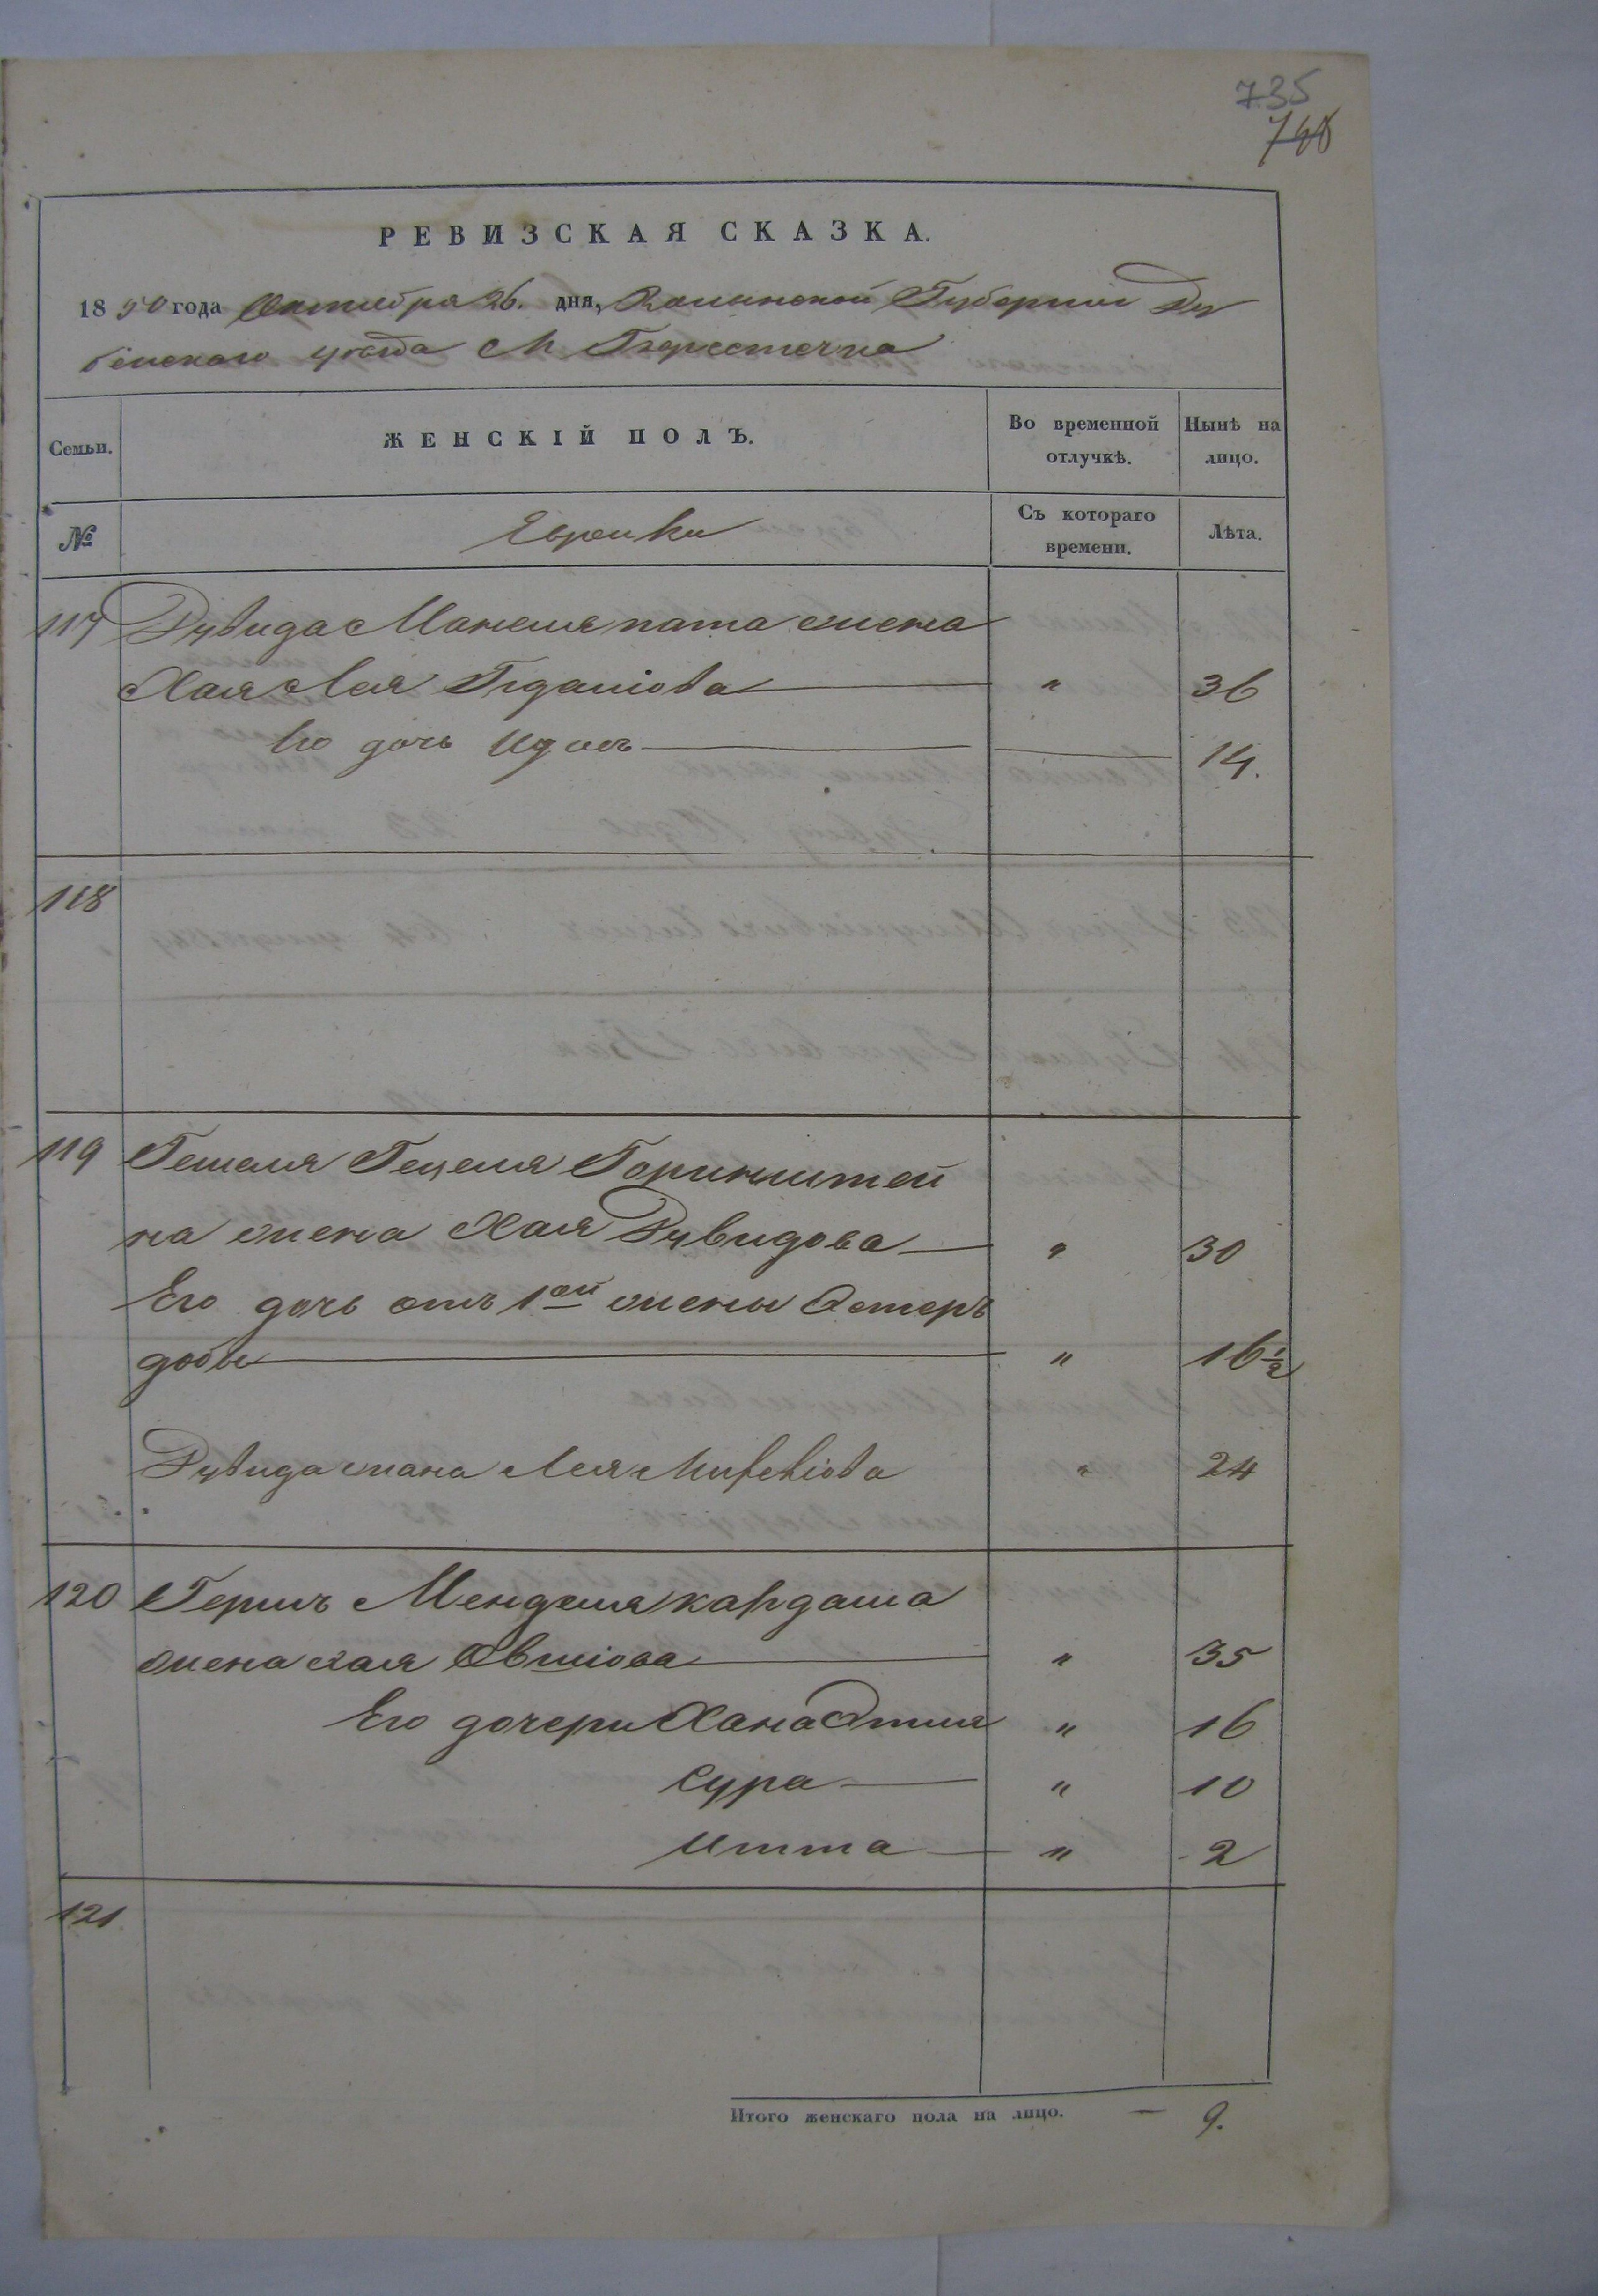 735
748
РЕВИЗСКАЯ СКАЗКА.
1850 года Октября 26. дня, Волынской Губернии Ду
бенскаго уезда М Берестечка
Семьи. ЖЕНСКІЙ ПОЛЪ. Во временной отлучкѣ. Нынѣ на лицо.
№ Еврейки Съ котораго времени. Лѣта.
117 Рувида Манеля пата жена
Хая Лея Гданіова " 36
Его дочь Идесъ 14.
118
119 Гешеля Гецеля Горинштей
на жена Хая Рувидова " 30
Его дочь отъ 1ой жены Эстеръ
добы " 16 1/2
Рувида жана Лея " 24
120 Гершъ Менделя кардаша
жена хая Овшіова " 35
Его дочери Хана Этля " 16
Сура " 10
Итта " 2
121
Итого женскаго пола на лицо. — 9.